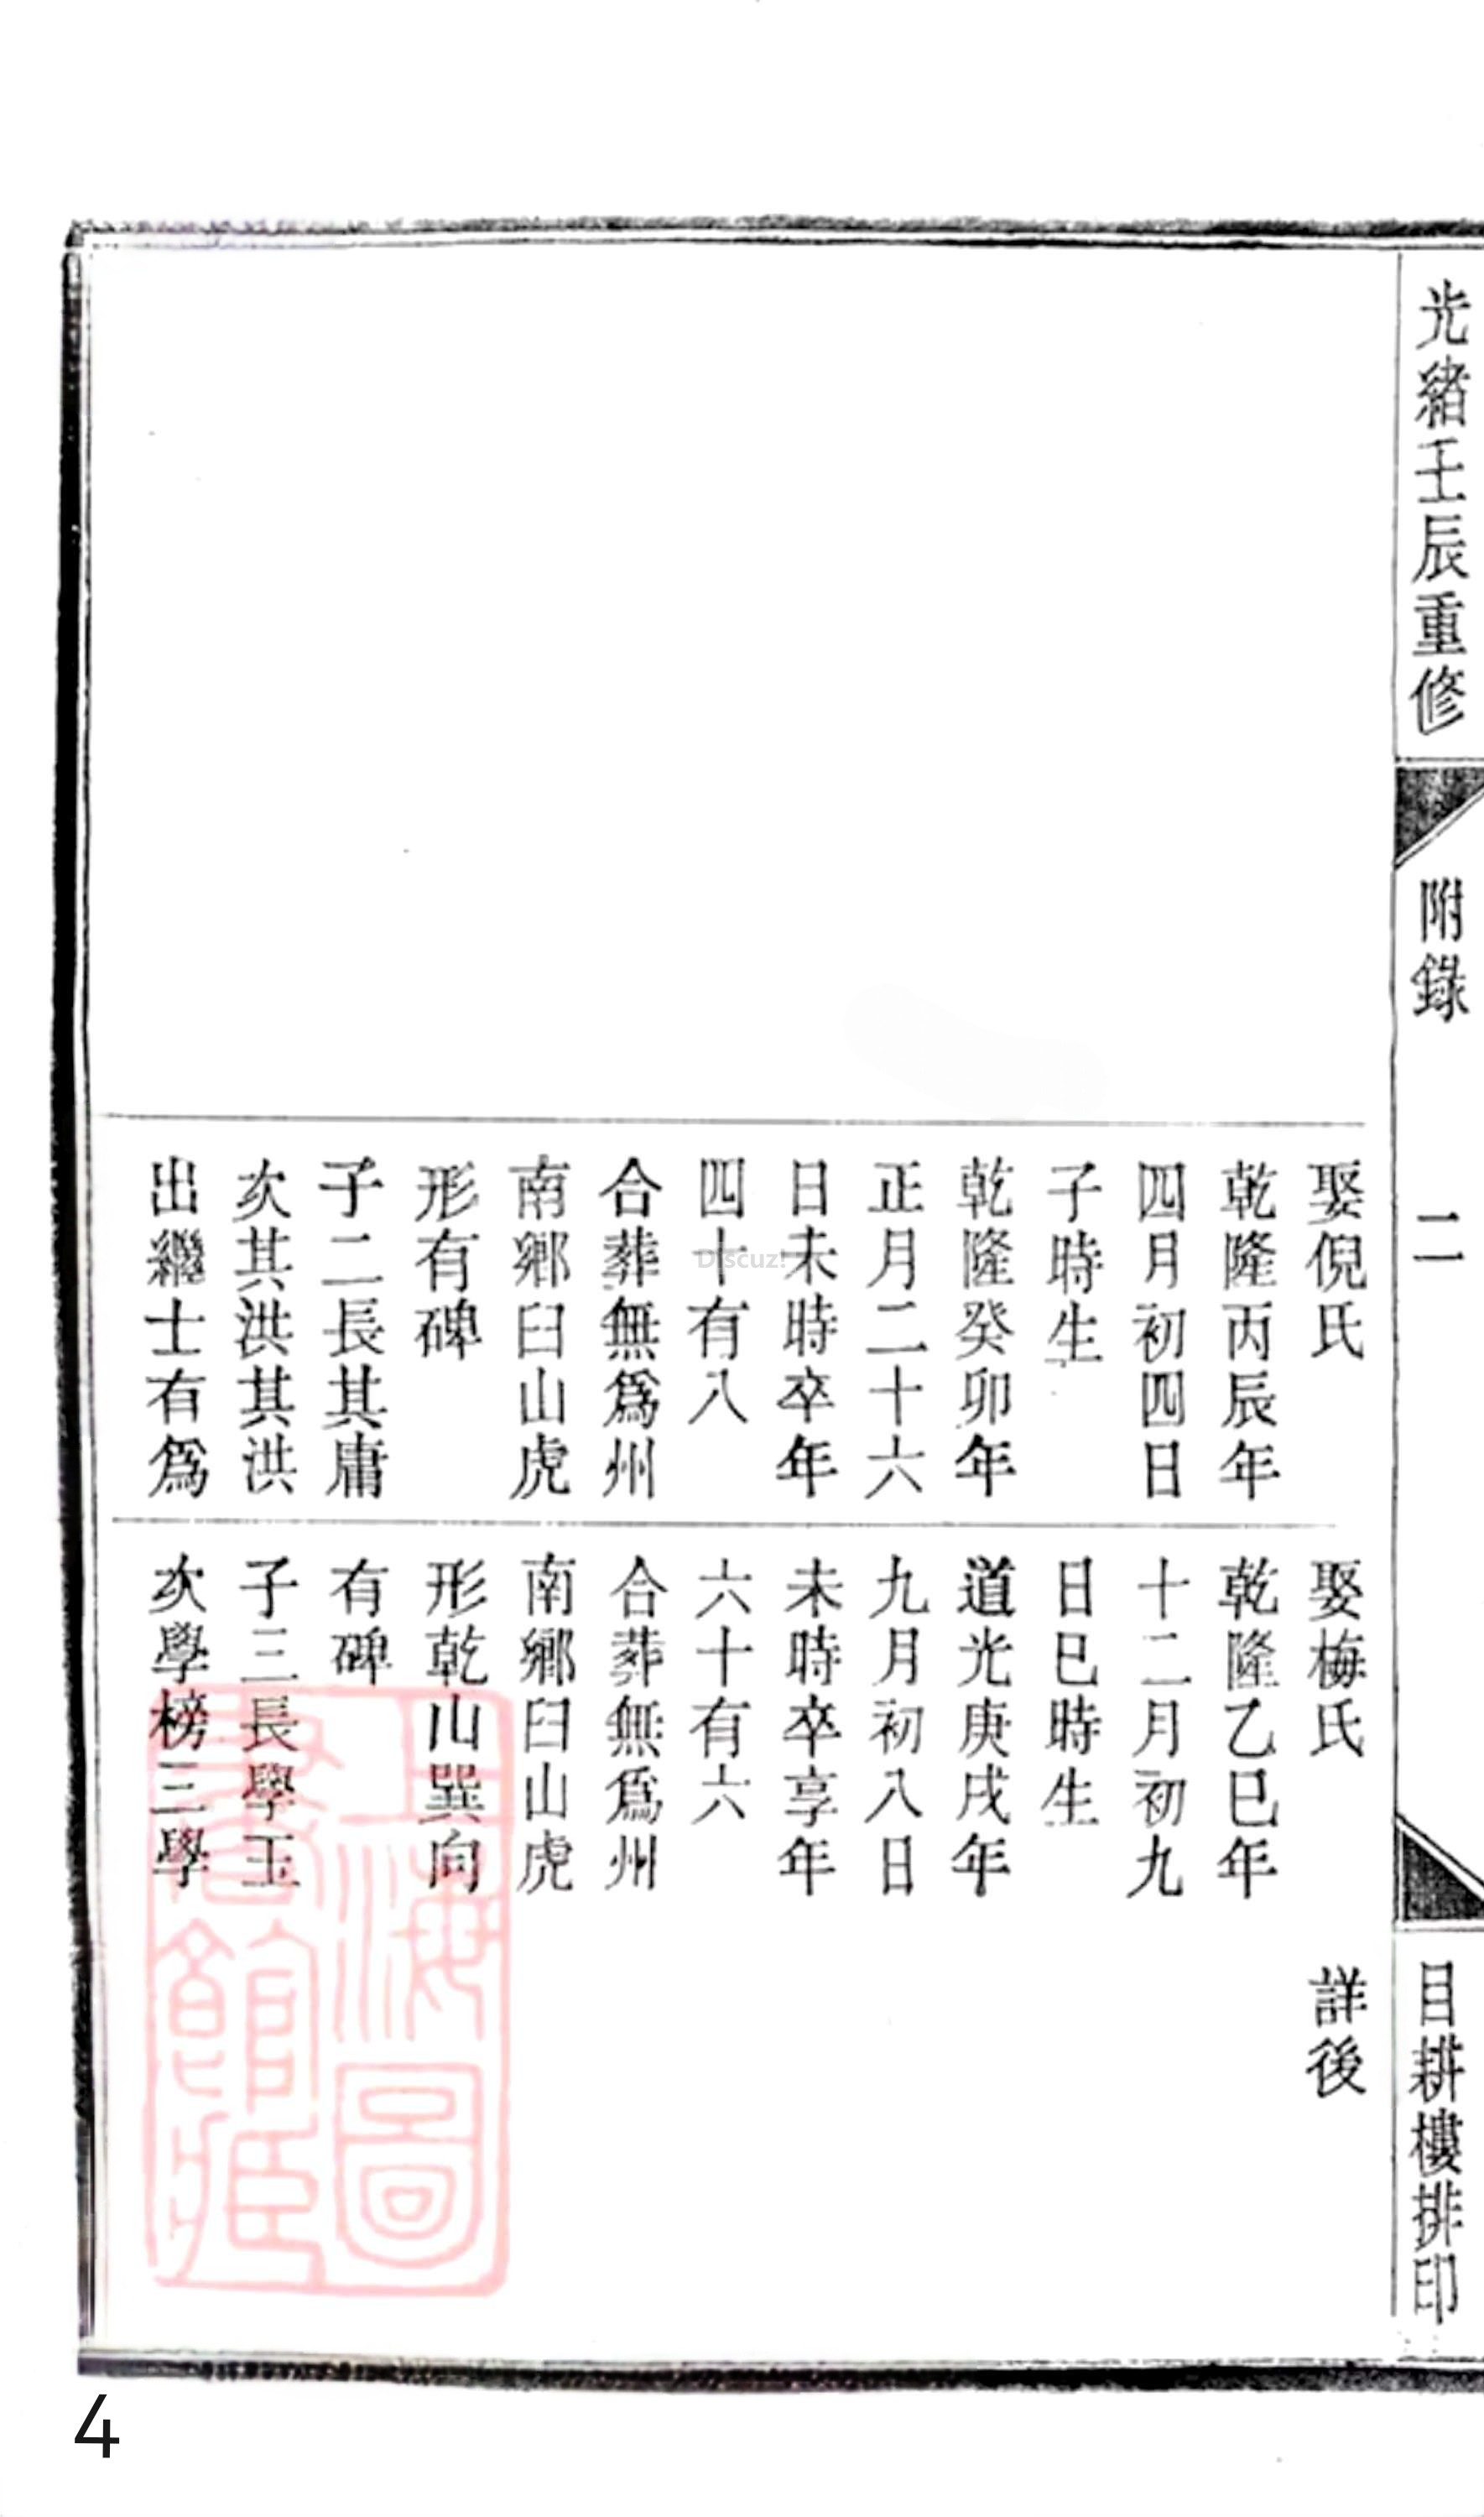 光緒壬辰重修
附錄
二
目耕樓排印
娶倪氏
乾隆丙辰年
四月初四日
子時生
乾隆癸卯年
正月二十六
日未時卒年
四十有八
合葬無爲州
南鄉臼山虎
形有碑
子二長其庸
次其洪其洪
出繼士有爲
娶梅氏
乾隆乙巳年
十二月初九
日巳時生
道光庚戌年
九月初八日
未時卒享年
六十有六
合葬無爲州
南鄉臼山虎
形乾山巽向
有碑
子三長學玉
次學榜三學
詳後
上海圖
書館藏
Discuz!
4